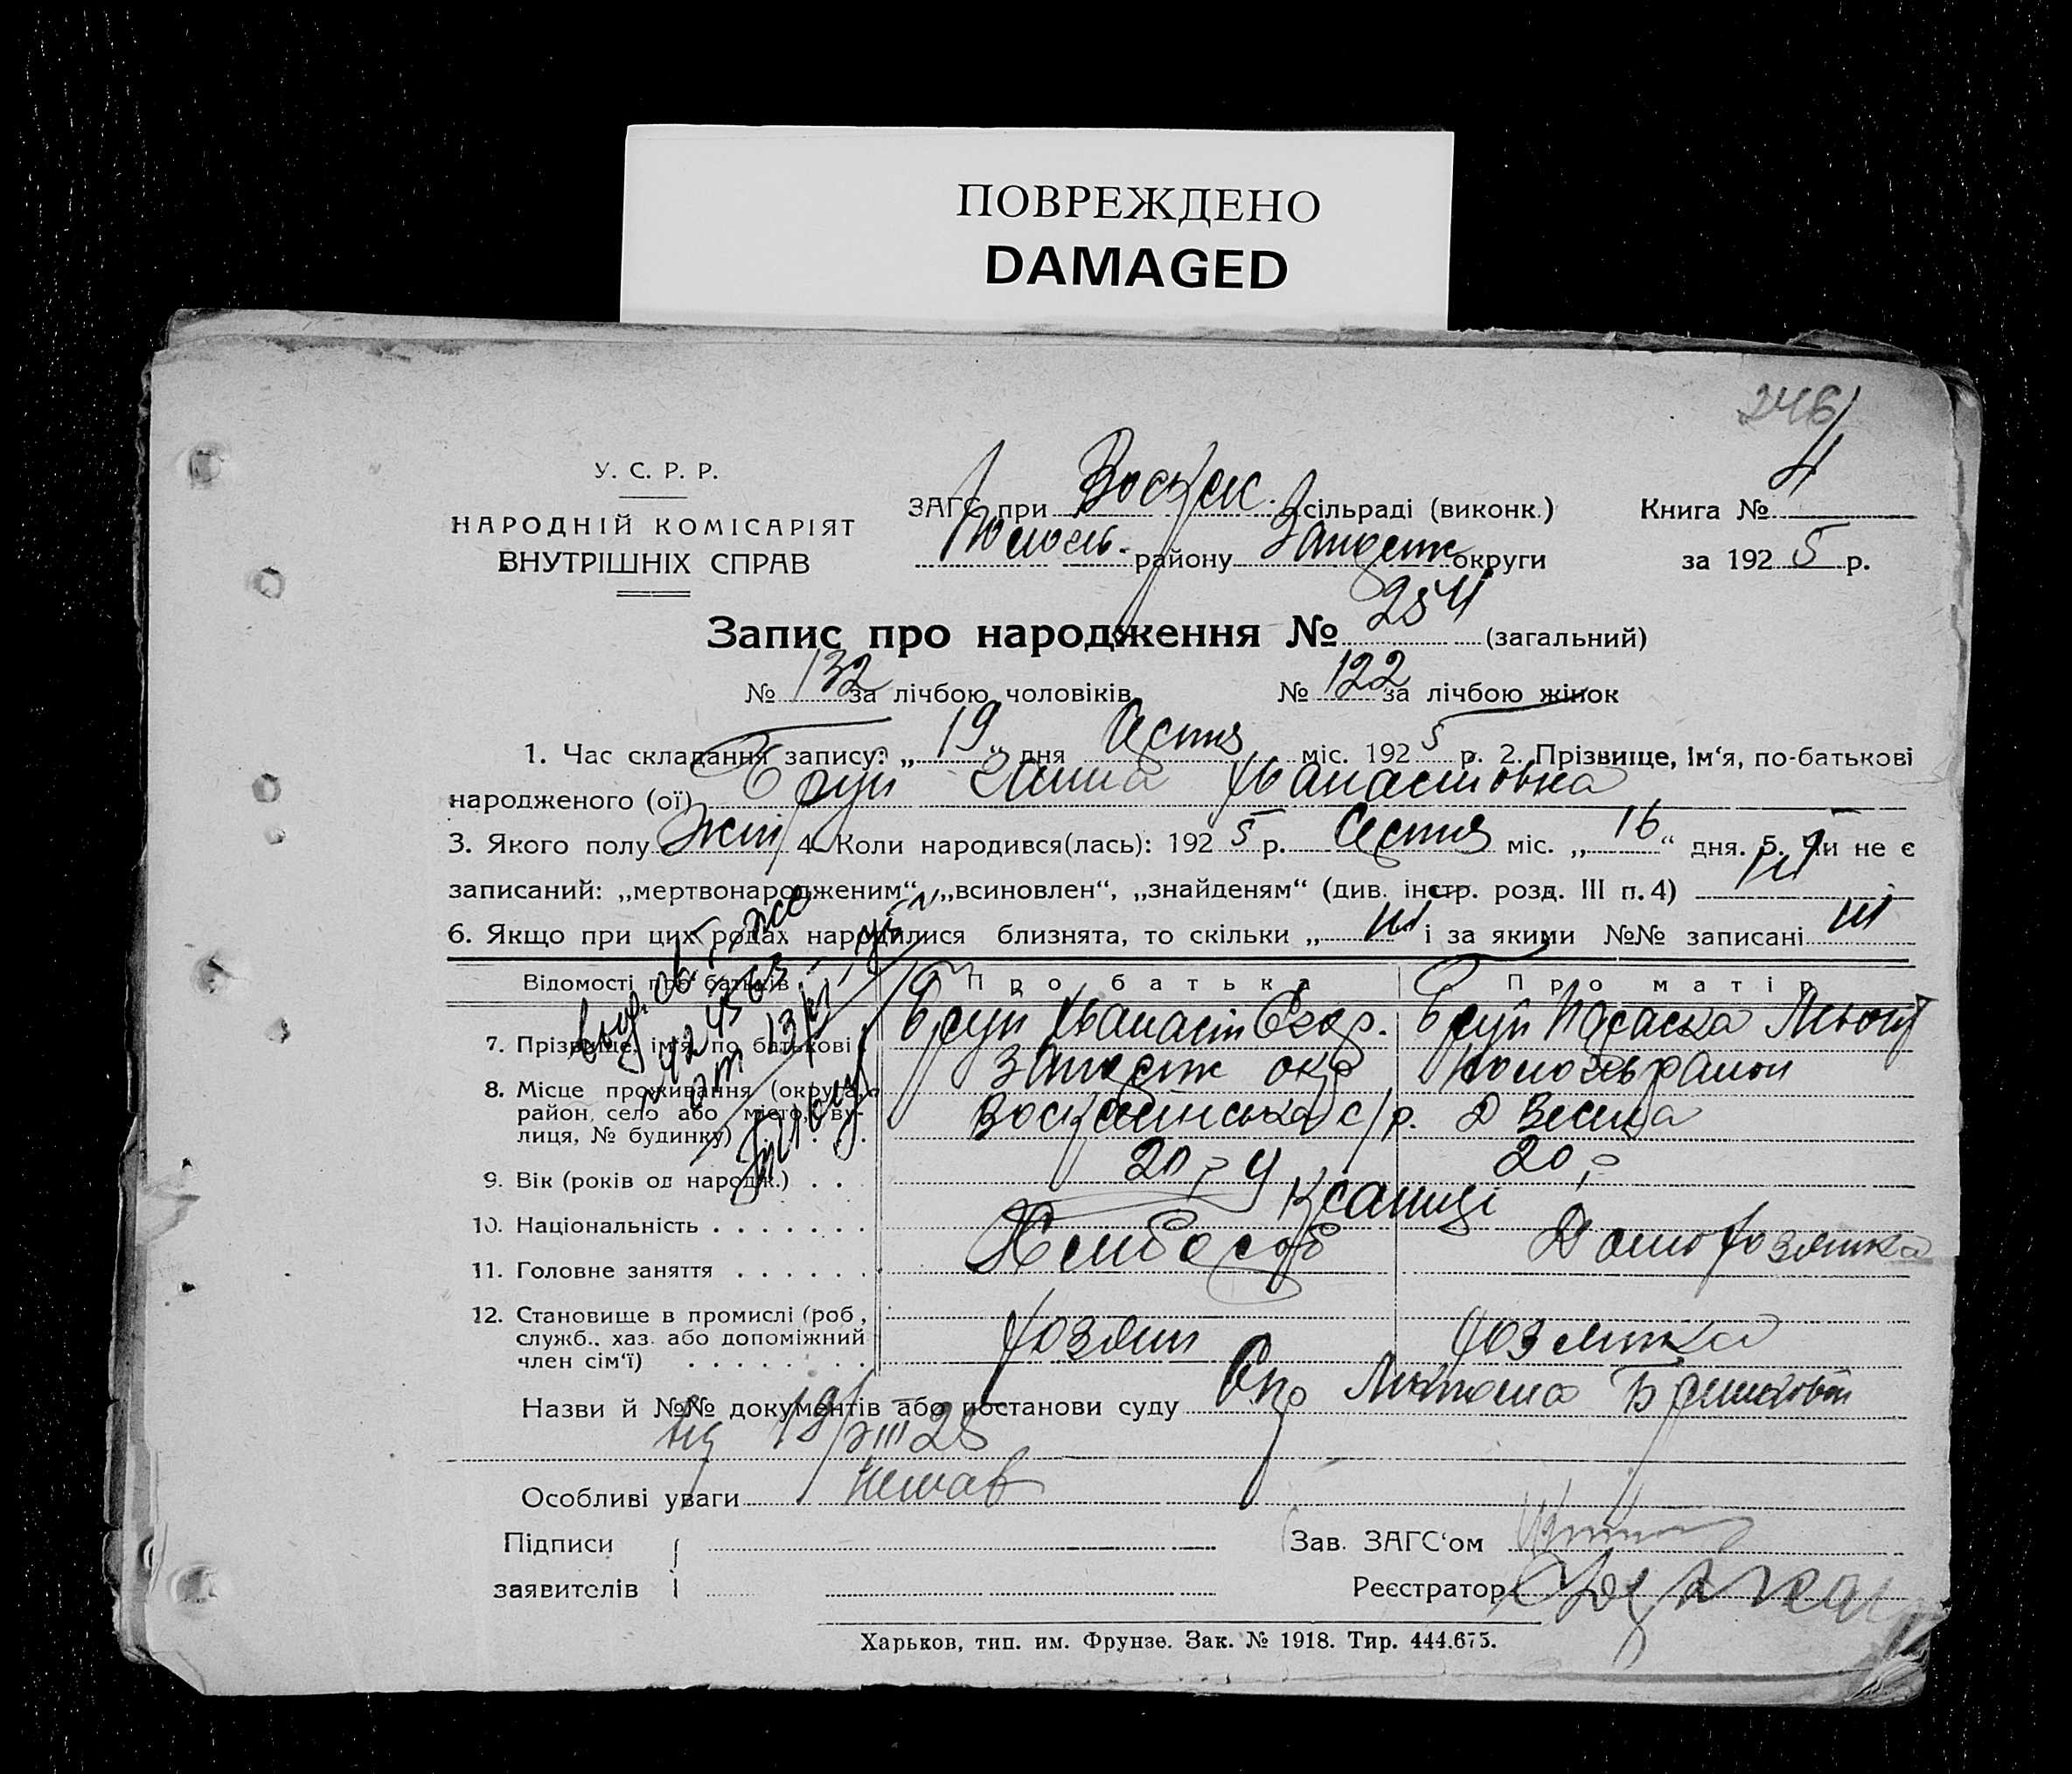 ПОВРЕЖДЕНО
DAMAGED
246
У. С. Р. Р.
НАРОДНІЙ КОМІСАРІЯТ
ВНУТРІШНІХ СПРАВ
ЗАГС при Воскрес. сільраді (виконк.)
району Запоріж округи
Книга № 4
за 1925 р.
Запис про народження № 254 (загальний)
№ 132 за лічбою чоловіків
№ 122 за лічбою жінок
1. Час складання запису: „19“ дня Серпня міс. 1925 р. 2. Прізвище, ім‘я, по-батькові
народженого (ої) Брун Ганна Хванастовна
3. Якого полу жін 4. Коли народився(лась): 1925 р. Серпня міс. „16“ дня. 5. Чи не є
записаний: „мертвонародженим“, „всиновлен“, „знайденям“ (див. інстр. розд. III п. 4) ні
6. Якщо при цих родах народилися близнята, то скільки „ні і за якими №№ записані ні
Відомості про батьків
Про батька
Про матір
7. Прізвище, ім‘я, по батькові. Брун Хванаст Егор. Брун Параска
8. Місце проживання (округа, Запоріж окр
район, село або місто, ву- Воскресінська с/р.
лиця, № будинку)
9. Вік (років од народж.) . . 20 20
10. Національність . . . . . . . Українці
11. Головне заняття . . . . . . Хлібороб Домохозяйка
12. Становище в промислі (роб,
служб., хаз. або допоміжний хозяин хозяйка
член сім‘ї) . . . . . . . .
Назви й №№ документів або постанови суду
від 19/VIII 25
Особливі уваги немає
Підписи
заявителів
Зав. ЗАГС‘ом
Реєстратор
Харьков, тип. им. Фрунзе. Зак. № 1918. Тир. 444.675.